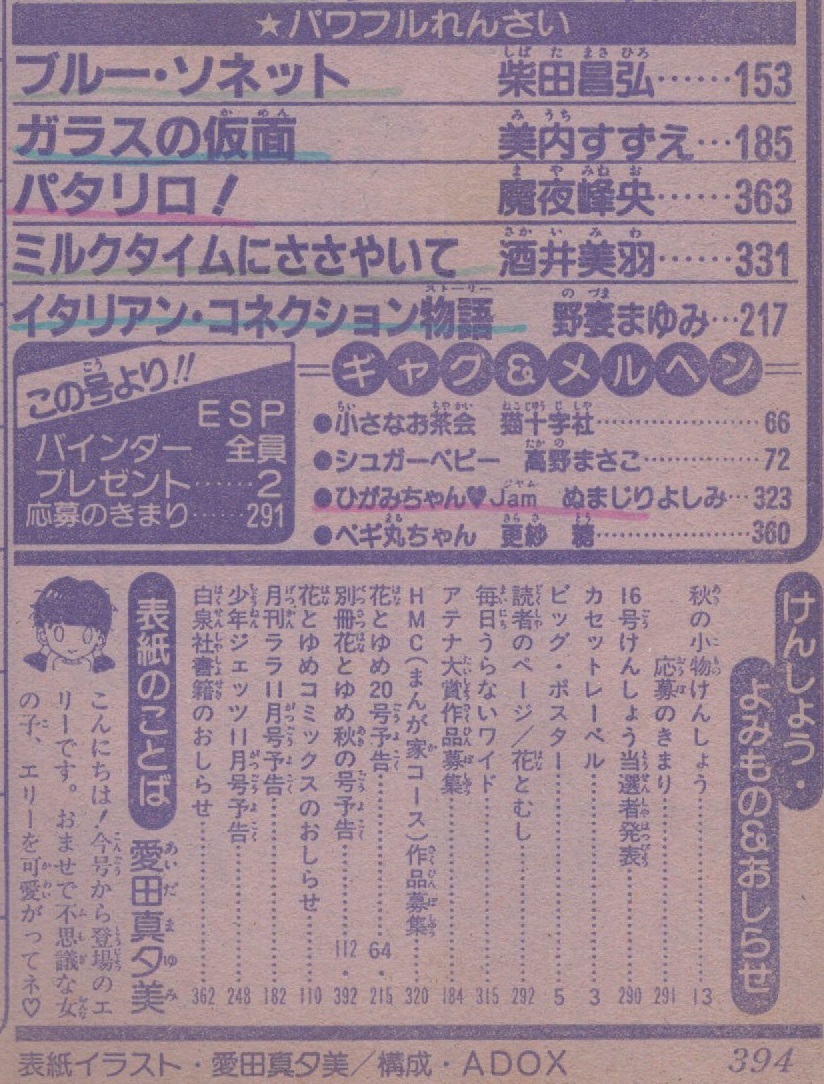 ★パワフルれんさい
ブルー・ソネット 柴田昌弘……153
ガラスの仮面 美内すずえ…185
パタリロ！ 魔夜峰央……363
ミルクタイムにささやいて 酒井美羽……331
イタリアン・コネクション物語 野妻まゆみ…217
この号より!!
ESP
バインダー 全員
プレゼント……2
応募のきまり……291
ギャグ&メルヘン
●小さなお茶会 猫十字社……66
●シュガーベビー 高野まさこ……72
●ひがみちゃん♥Jam ぬまじりよしみ…323
●ペギ丸ちゃん 更紗 糖……360
けんしょう・
よみもの&おしらせ
秋の小物けんしょう……13
応募のきまり……291
16号けんしょう当選者発表……290
カセットレーベル……3
ビッグ・ポスター……5
読者のページ／花とむし……292
毎日うらないワイド……315
アテナ大賞作品募集……184
HMC(まんが家コース)作品募集……320
花とゆめ20号予告……64・215
別冊花とゆめ秋の号予告……112・392
花とゆめコミックスのおしらせ……110
月刊ララ11月号予告……182
少年ジェッツ11月号予告……248
白泉社書籍のおしらせ……362
表紙のことば 愛田真夕美
こんにちは！今号から登場のエ
リーです。おませで不思議な女
の子、エリーを可愛がってネ♡
表紙イラスト・愛田真夕美／構成・ADOX
394